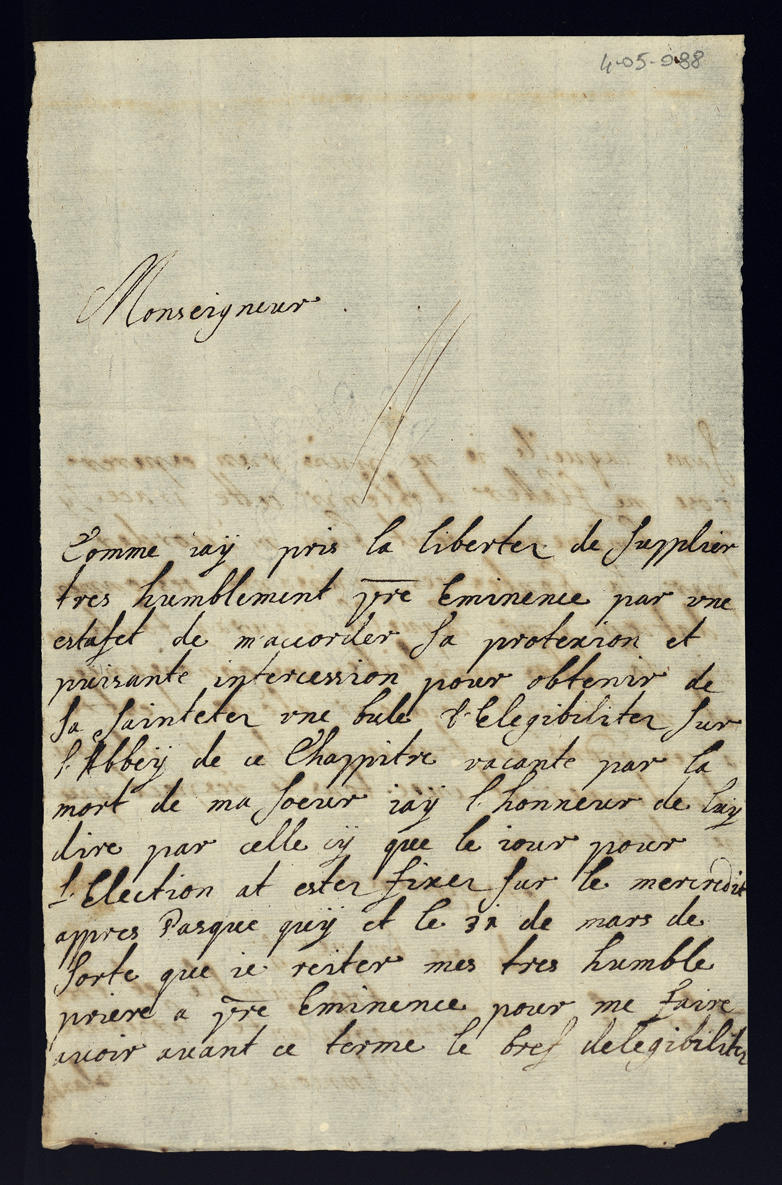 4-05-088
Monseigneur
Comme iaÿ pris la libertez de supplier
tres humblement vr̄e Eminence par vne
estafet de m'accorder sa protexion et
puisante intercession pour obtenir de
sa sainteter vne bule d'Elegibilitez sur
l'Abbeÿ de ce Chappitre vacante par la
mort de ma soeur iaÿ l'honneur de luy
dire par celle cÿ que le iour pour
l'Election at ester fixer sur le mercredit
appres Pasque quÿ et le 31 de mars de
sorte que ie reiter mes tres humble
priere a vr̄e Eminence pour me faire
avoir avant ce terme le bref delegibilitez